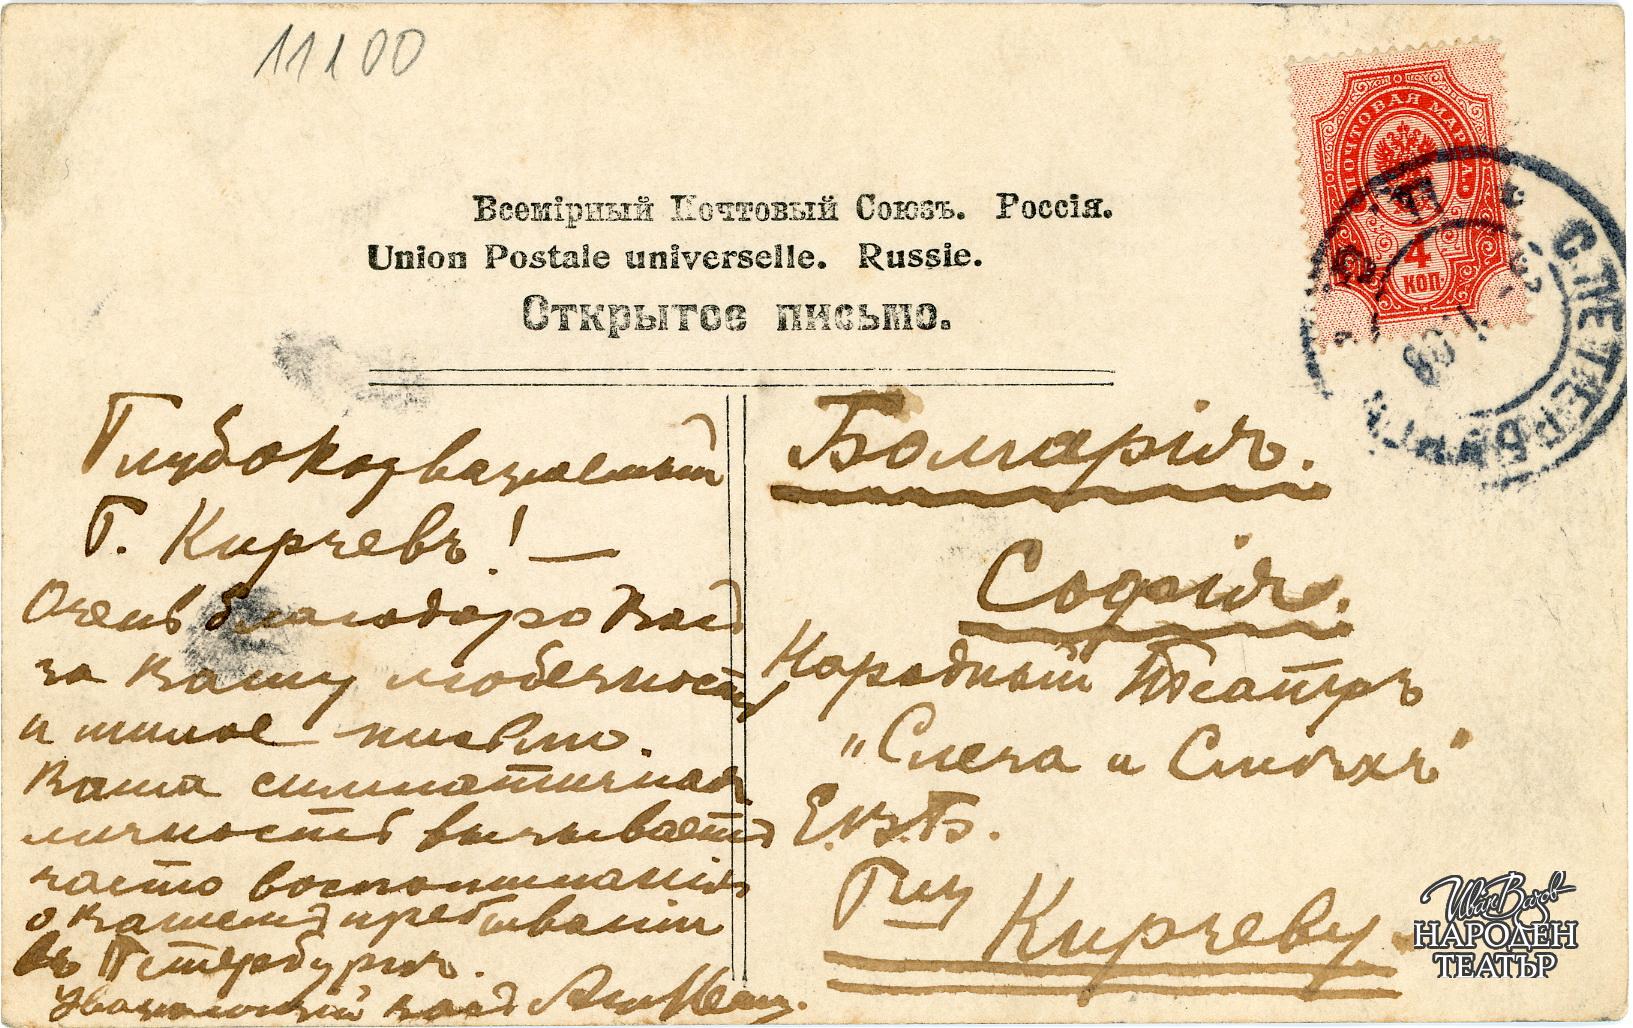 11100
Всемірный Почтовый Союзъ. Россія.
Union Postale universelle. Russie.
Открытое письмо.
ПОЧТОВАЯ МАРКА.
4
КОП.
С.ПЕТЕРБУРГЪ
Глубокоуважаемый
Г. Кирчевъ! —
Очень благодарю Васъ
за Вашу любезность
и милое письмо.
Ваша симпатичная
личность вызываетъ
часто воспоминанія
о Вашемъ пребываніи
въ Петербургѣ.
Уважающій Васъ
Болгарія.
Софія.
Народный Театръ
"Слеза и Смѣхъ"
Е.В.Б.
Г-ну
Кирчеву.
Иван Вазов
НАРОДЕН
ТЕАТЪР